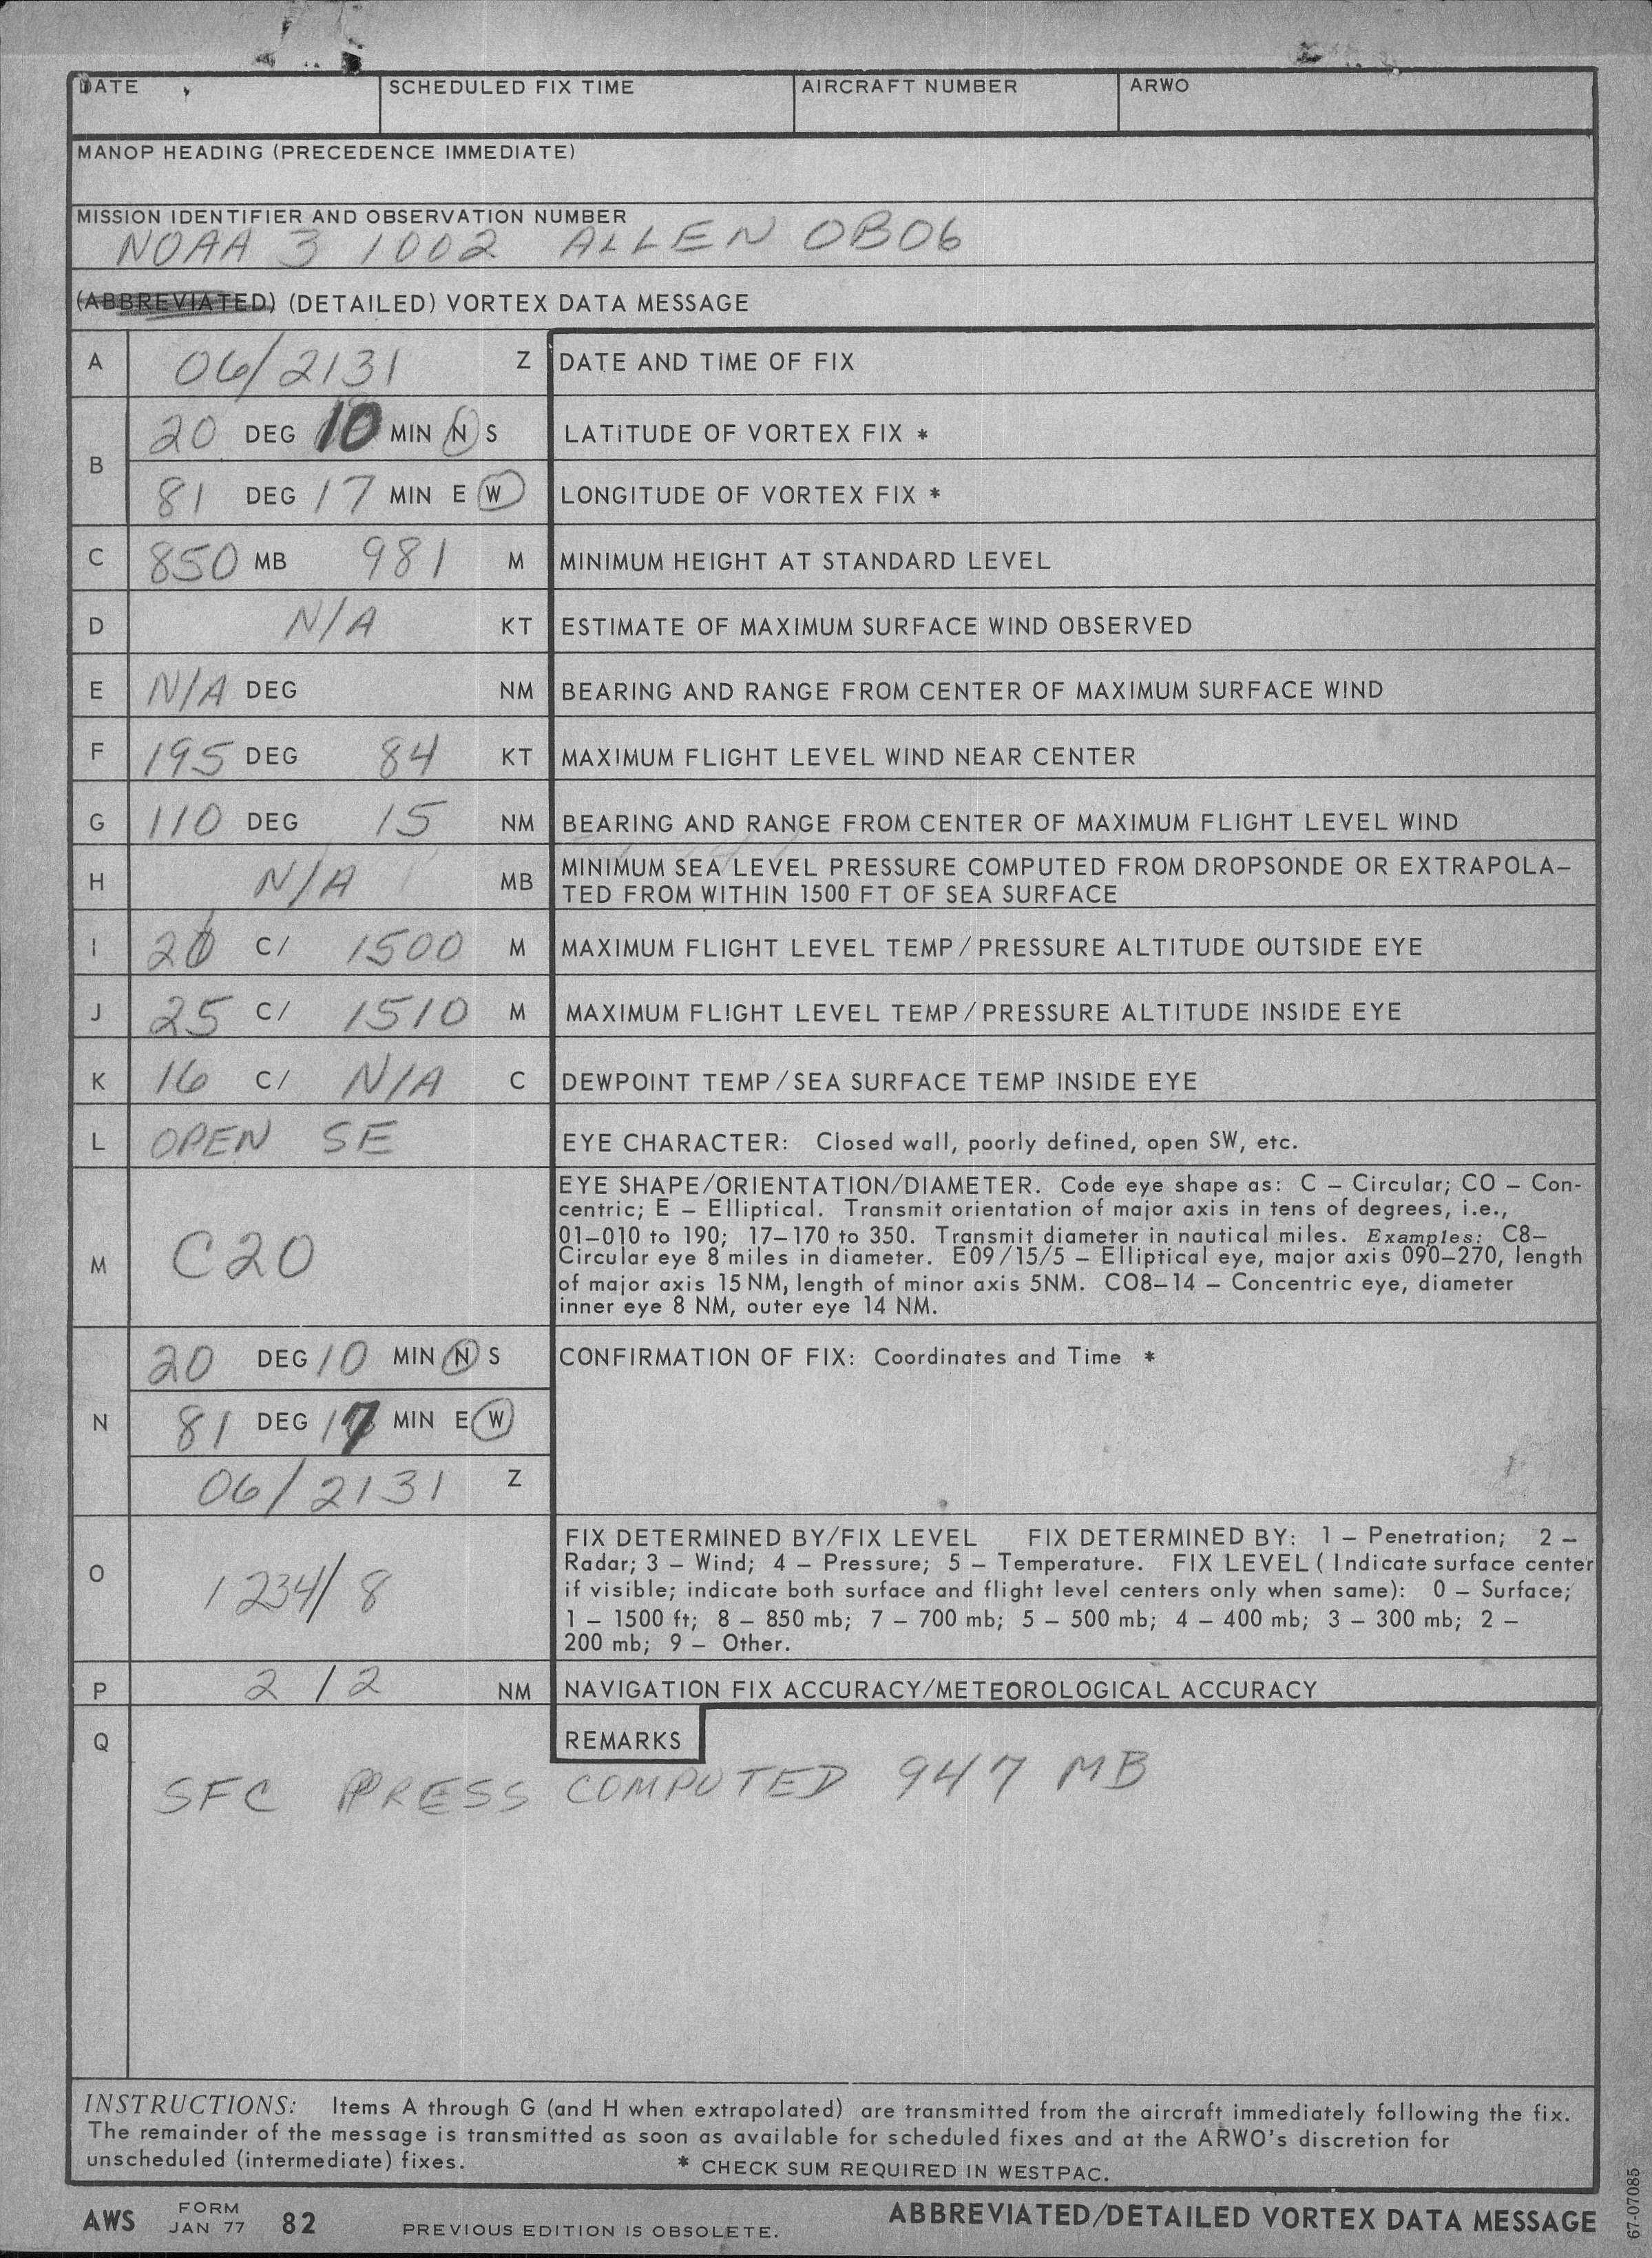 DATE SCHEDULED FIX TIME AIRCRAFT NUMBER ARWO
MANOP HEADING (PRECEDENCE IMMEDIATE)
MISSION IDENTIFIER AND OBSERVATION NUMBER
NOAA 3 1002 ALLEN OB06
(ABBREVIATED) (DETAILED) VORTEX DATA MESSAGE
A 06/2131 Z DATE AND TIME OF FIX
B 20 DEG 10 MIN N S LATITUDE OF VORTEX FIX *
81 DEG 17 MIN E W LONGITUDE OF VORTEX FIX *
C 850 MB 981 M MINIMUM HEIGHT AT STANDARD LEVEL
D N/A KT ESTIMATE OF MAXIMUM SURFACE WIND OBSERVED
E N/A DEG NM BEARING AND RANGE FROM CENTER OF MAXIMUM SURFACE WIND
F 195 DEG 84 KT MAXIMUM FLIGHT LEVEL WIND NEAR CENTER
G 110 DEG 15 NM BEARING AND RANGE FROM CENTER OF MAXIMUM FLIGHT LEVEL WIND
H N/A MB MINIMUM SEA LEVEL PRESSURE COMPUTED FROM DROPSONDE OR EXTRAPOLA-
TED FROM WITHIN 1500 FT OF SEA SURFACE
I 20 C/ 1500 M MAXIMUM FLIGHT LEVEL TEMP/PRESSURE ALTITUDE OUTSIDE EYE
J 25 C/ 1510 M MAXIMUM FLIGHT LEVEL TEMP/PRESSURE ALTITUDE INSIDE EYE
K 16 C/ N/A C DEWPOINT TEMP/SEA SURFACE TEMP INSIDE EYE
L OPEN SE EYE CHARACTER: Closed wall, poorly defined, open SW, etc.
M C20 EYE SHAPE/ORIENTATION/DIAMETER. Code eye shape as: C – Circular; CO – Con-
centric; E – Elliptical. Transmit orientation of major axis in tens of degrees, i.e.,
01–010 to 190; 17–170 to 350. Transmit diameter in nautical miles. Examples: C8–
Circular eye 8 miles in diameter. E09/15/5 – Elliptical eye, major axis 090–270, length
of major axis 15 NM, length of minor axis 5NM. CO8–14 – Concentric eye, diameter
inner eye 8 NM, outer eye 14 NM.
N 20 DEG 10 MIN N S CONFIRMATION OF FIX: Coordinates and Time *
81 DEG 17 MIN E W
06/2131 Z
O 1234/8 FIX DETERMINED BY/FIX LEVEL FIX DETERMINED BY: 1 – Penetration; 2 –
Radar; 3 – Wind; 4 – Pressure; 5 – Temperature. FIX LEVEL (Indicate surface center
if visible; indicate both surface and flight level centers only when same): 0 – Surface;
1 – 1500 ft; 8 – 850 mb; 7 – 700 mb; 5 – 500 mb; 4 – 400 mb; 3 – 300 mb; 2 –
200 mb; 9 – Other.
P 2 / 2 NM NAVIGATION FIX ACCURACY/METEOROLOGICAL ACCURACY
Q REMARKS
SFC PRESS COMPUTED 947 MB
INSTRUCTIONS: Items A through G (and H when extrapolated) are transmitted from the aircraft immediately following the fix.
The remainder of the message is transmitted as soon as available for scheduled fixes and at the ARWO's discretion for
unscheduled (intermediate) fixes. * CHECK SUM REQUIRED IN WESTPAC.
AWS FORM JAN 77 82 PREVIOUS EDITION IS OBSOLETE. ABBREVIATED/DETAILED VORTEX DATA MESSAGE
67-07085